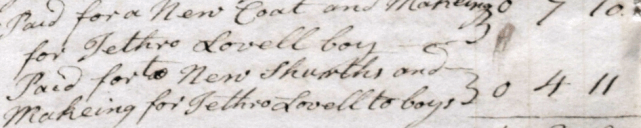 Paid for a New Coat and Makeing 0 7 10
for Jethro Lovell boy
Paid for to New Shurths and
Makeing for Jethro Lovell to boys 0 4 11